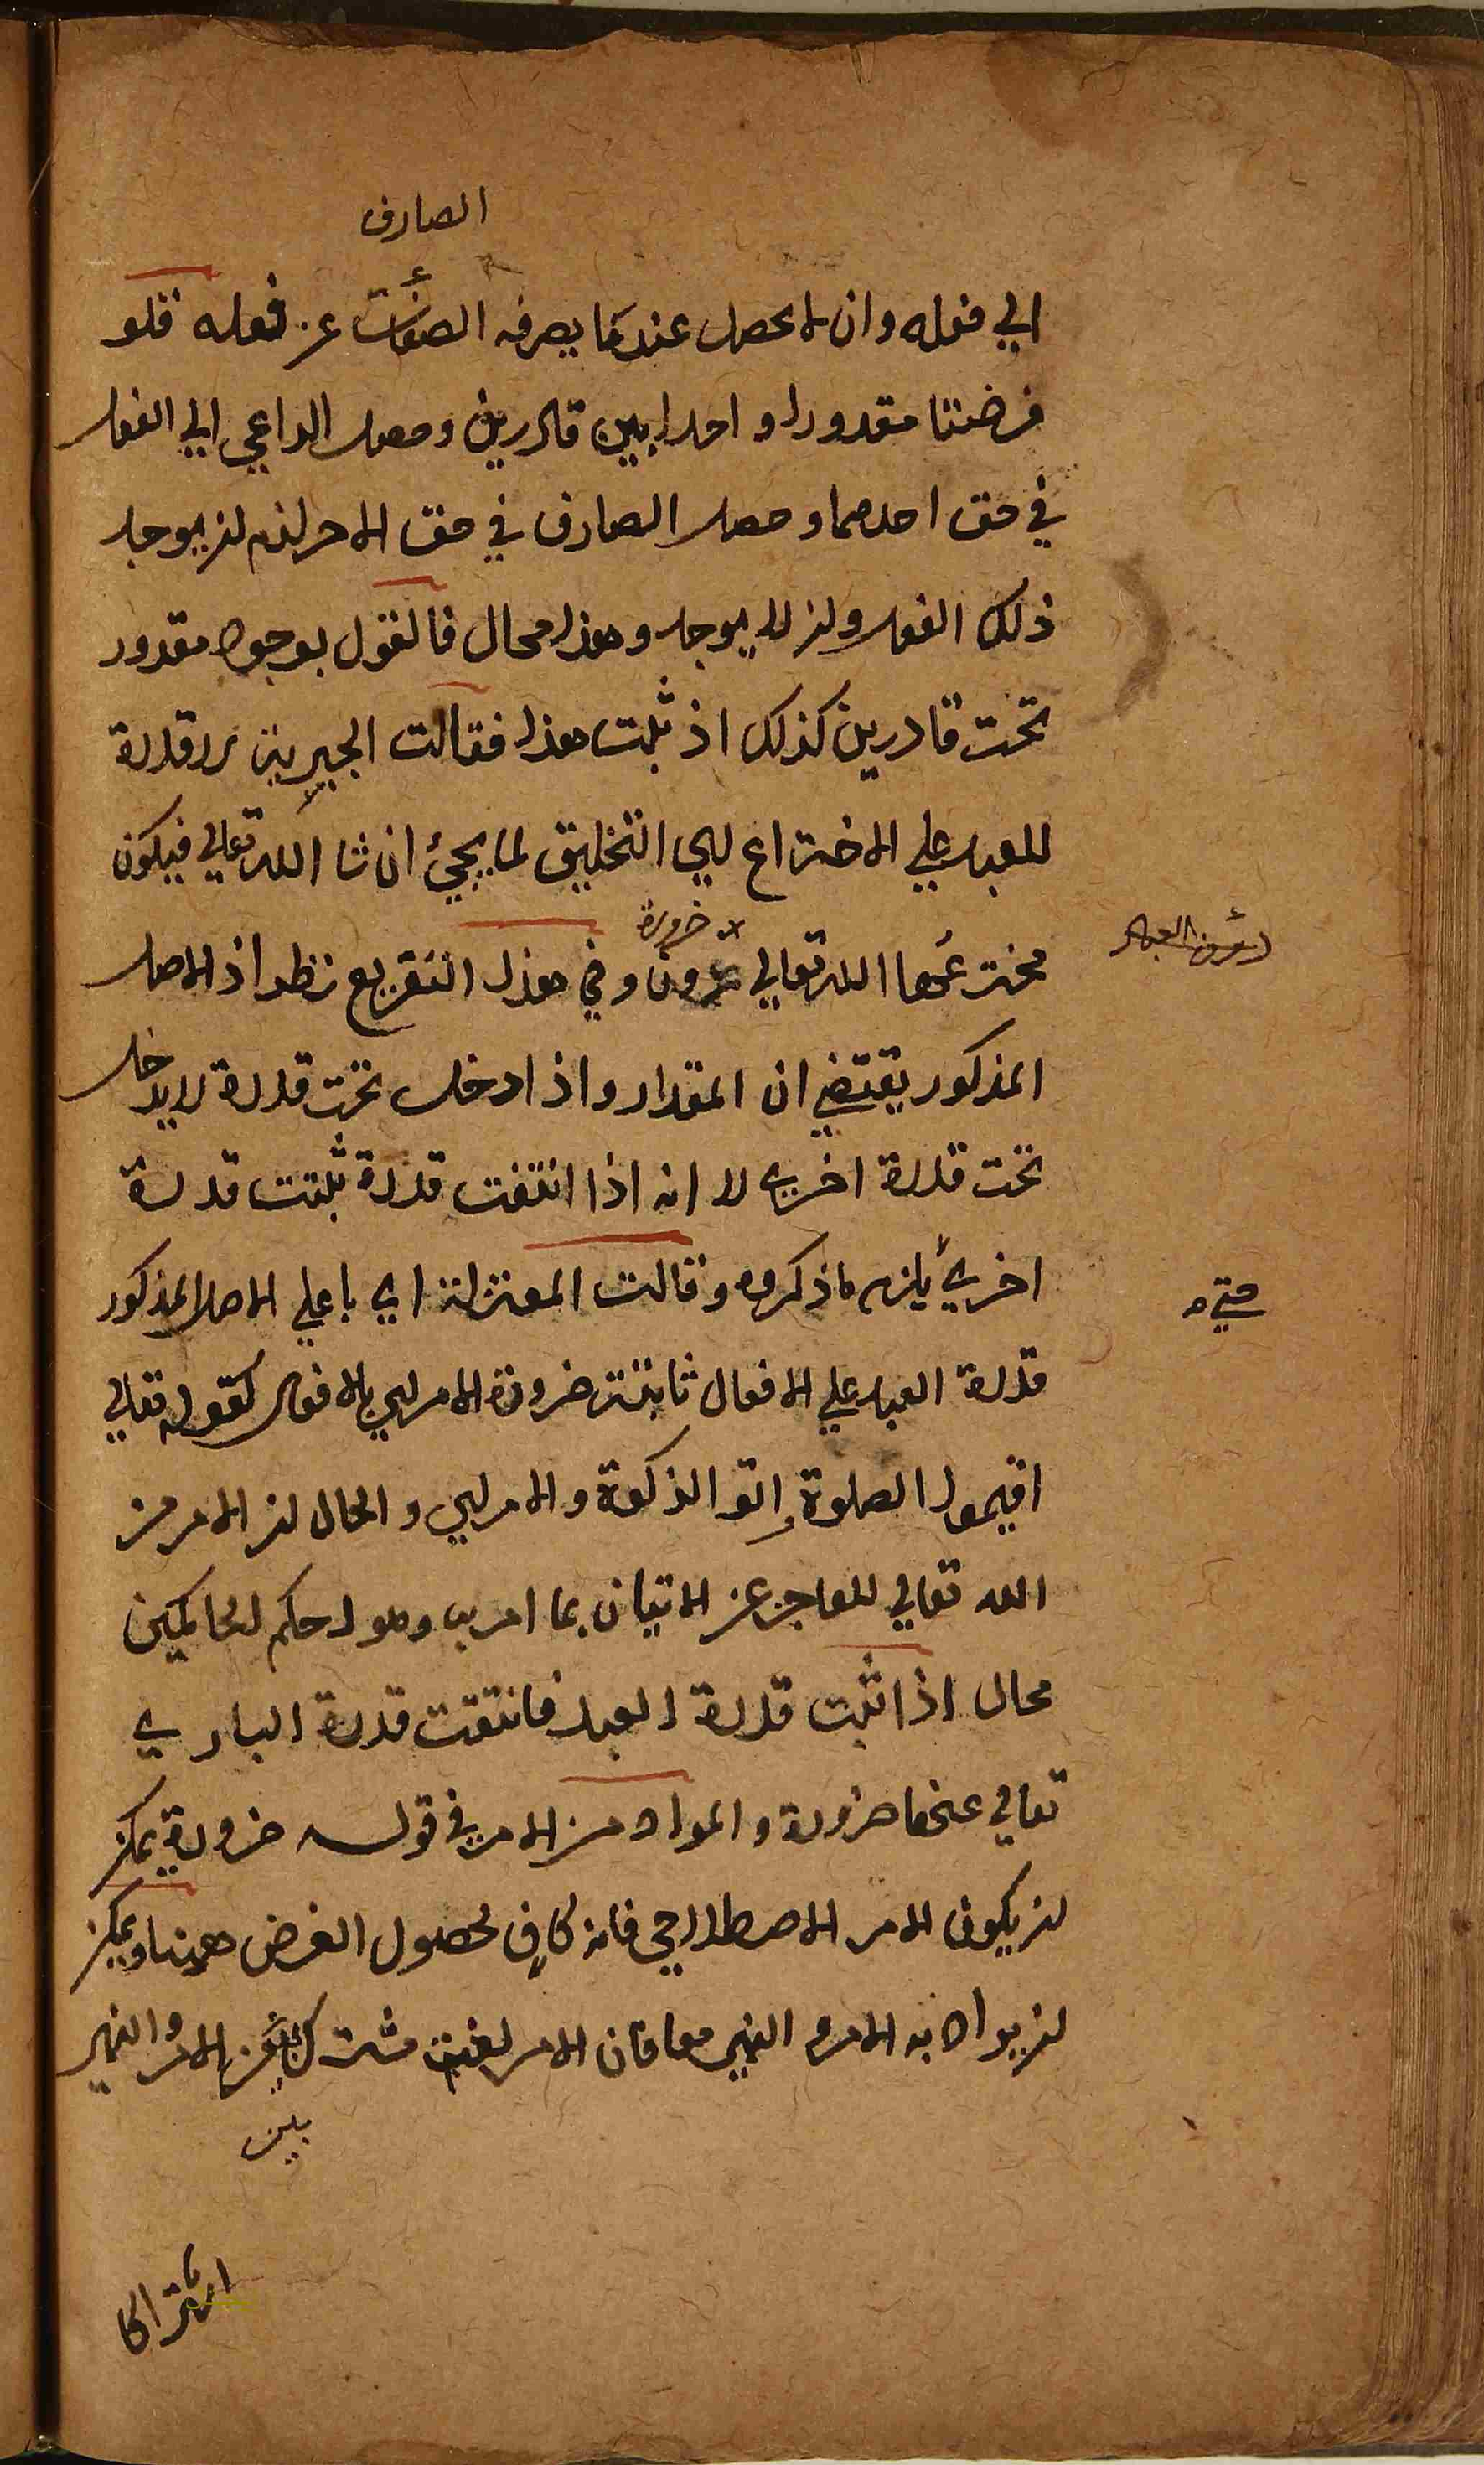 الصارف
الي فعله وان لا يحصل عندما يصرفه الصفات عن فعله فلو
فرضنا مقدورا واحدا بين قادرين وحصل الداعي الي الفعل
في حق احدهما وحصل الصارف في حق الاخر لزم ان يوجد
ذلك الفعل وان لا يوجد وهذا محال فالقول بوجود مقدور
تحت قادرين كذلك اذ ثبت هذا فقالت الجبرية لا قدرة
للعبد علي الاختراع اي التخليق لما يجئ ان شا الله تعالي فيكون
مخترعها الله تعالي ضرورة وفي هذا التفريع نظر اذ الاصل
دون العبد
المذكور يقتضي ان المقدار واذا دخل تحت قدرة لا يدخل
تحت قدرة اخري لا انه اذا انتفت قدرة ثبتت قدرة
اخري يلزم ما ذكروه وقالت المعتزلة اي با علي الاصل المذكور
حتي
قدرة العبد علي الافعال ثابتة ضرورة الامر اي بالافعال كقوله تعالي
اقيموا الصلوة واتو الزكوة والامر اي والحال ان الامر من
الله تعالي للعاجز عن الاتيان بما امر به وهو احكم الحاكمين
محال اذا ثبت قدرة العبد فانتفت قدرة الباري
تعالي عنها ضرورة والمراد من الامر في قوله ضرورة يمكن
ان يكون الامر الاصطلاحي فانه كاف لحصول الغرض ههنا ويمكن
ان يراد به الامر و النهي معا فان الامر لغة مشترك بين الامر والنهي
بين
اشتراكا